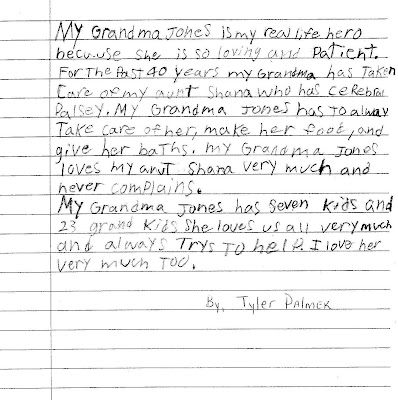 My Grandma Jones is my real life hero
becuuse she is so loving and Patient.
For The Past 40 years my Grandma has Taken
Care of my aunt Shana who has cerebral
Palsey. My Grandma Jones has To alway
Take care of her, make her food, and
give her baths. my Grandma Jones
loves my anut Shana very much and
never complains.
My Grandma Jones has seven kids and
23 grand kids she loves us all very much
and always Trys To help. I love her
very much Too.
By, Tyler Palmer